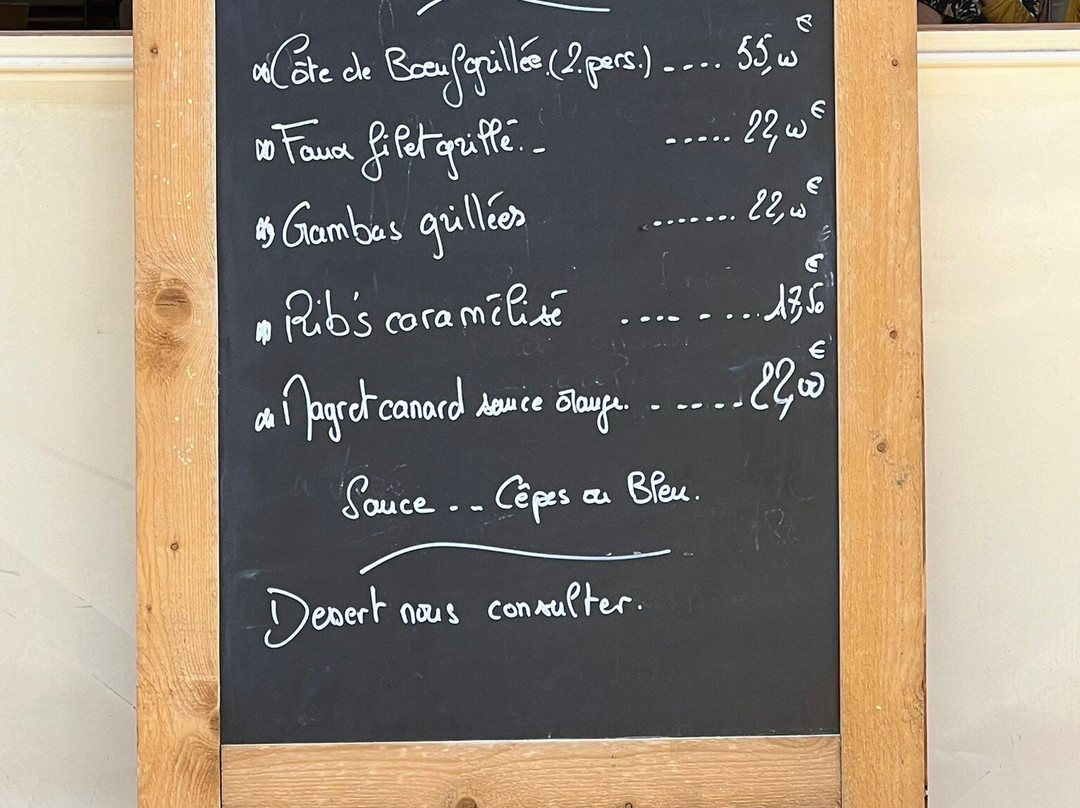 Côte de Boeuf grillée.(2.pers.) .... 55,00€
Faux filet grillé. ..... 22,00€
Gambas grillées ....... 22,00€
Rib's caramélisé ........ 17,50€
Magret canard sauce orange. ..... 22,00€
Sauce .. Cêpes ou Bleu.
Desert nous consulter.